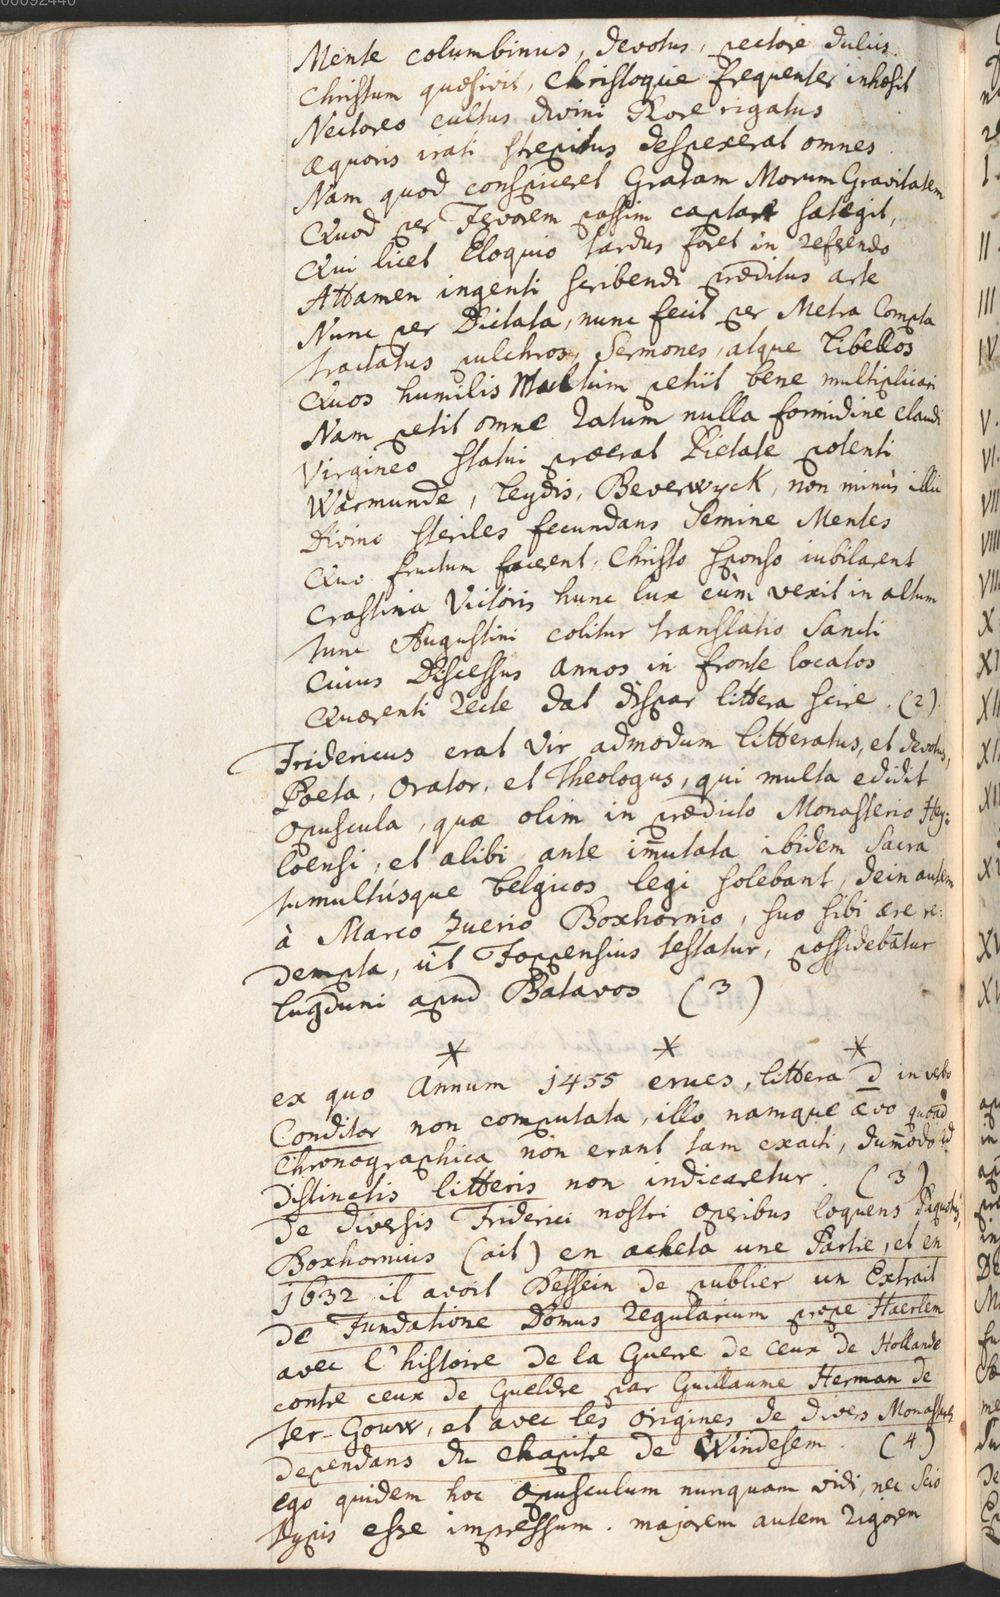 00092440
Mente columbinus, devotus, pectore dulcis.
Christum quæsivit, Christoque frequenter inhæsit
Nectoreo cultus divini Rore rigatus
æquoris irati strepitus despexerat omnes
Nam quod conspiceret Gratam Morum Gravitatem
Quod per passim captare sategit,
Qui licet Eloquio tardus foret in referendo
Attamen ingenti scribendi præditus arte
Nunc per Dictata, nunc fecit per Metra Compta
tractatus pulchros, Sermones, atque Libellos
Quos humilis Multum petiit bene multiplicari
Nam petit omne ratum nulla formidine claudi
Virgineo statui præerat Pietate potenti
Warmunde, Leydis, Beverwyck, non minùs illic
Divino steriles fecundans Semine Mentes
Quo fructum facerent, Christo sponso iubilarent
Crastina Victoris hunc lux cùm vexit in altum
tunc Augustini colitur translatio Sancti
Cuius Discessus annos in fronte locatos
Quærenti recte dat dispar littera scire. (2)
Fridericus erat Vir admodum litteratus, et devotus,
Poeta, Orator, et Theologus, qui multa edidit
Opuscula, quæ olim in prædicto Monasterio Hey:
loensi, et alibi ante im̄utata ibidem Sacra
tumultúsque belgicos legi solebant, dein autem
à Marco Zuerio Boxhornio, suo sibi ære re:
dempta, ùt Foppensius testatur, possidebātur
Lugduni apud Batavos (3)
* * *
ex quo Annum 1455 erues, littera D in verbo
Conditor non computata, illo namque ævo quoad
Chronographica non erant tam exacti, dum̄odo id
distinctis litteris non indicaretur. (3)
De diversis Friderici nostri operibus loquens Paquotius,
Boxhornius (ait) en acheta une Partie, et en
1632 il avoit Dessein de publier un Extrait
de Fundatione Domus Regularium prope Haerlem
avec l'histoire de la Guerre de ceux de Hollande
contre ceux de Gueldre par Guillaume Herman de
ter-Gouw, et avec les origines de divers Monasteres
dependans du chapitre de Windesem. (4)
ego quidem hoc opusculum nunquam vidi, nec scio
typis esse impressum. majorem autem rigorem